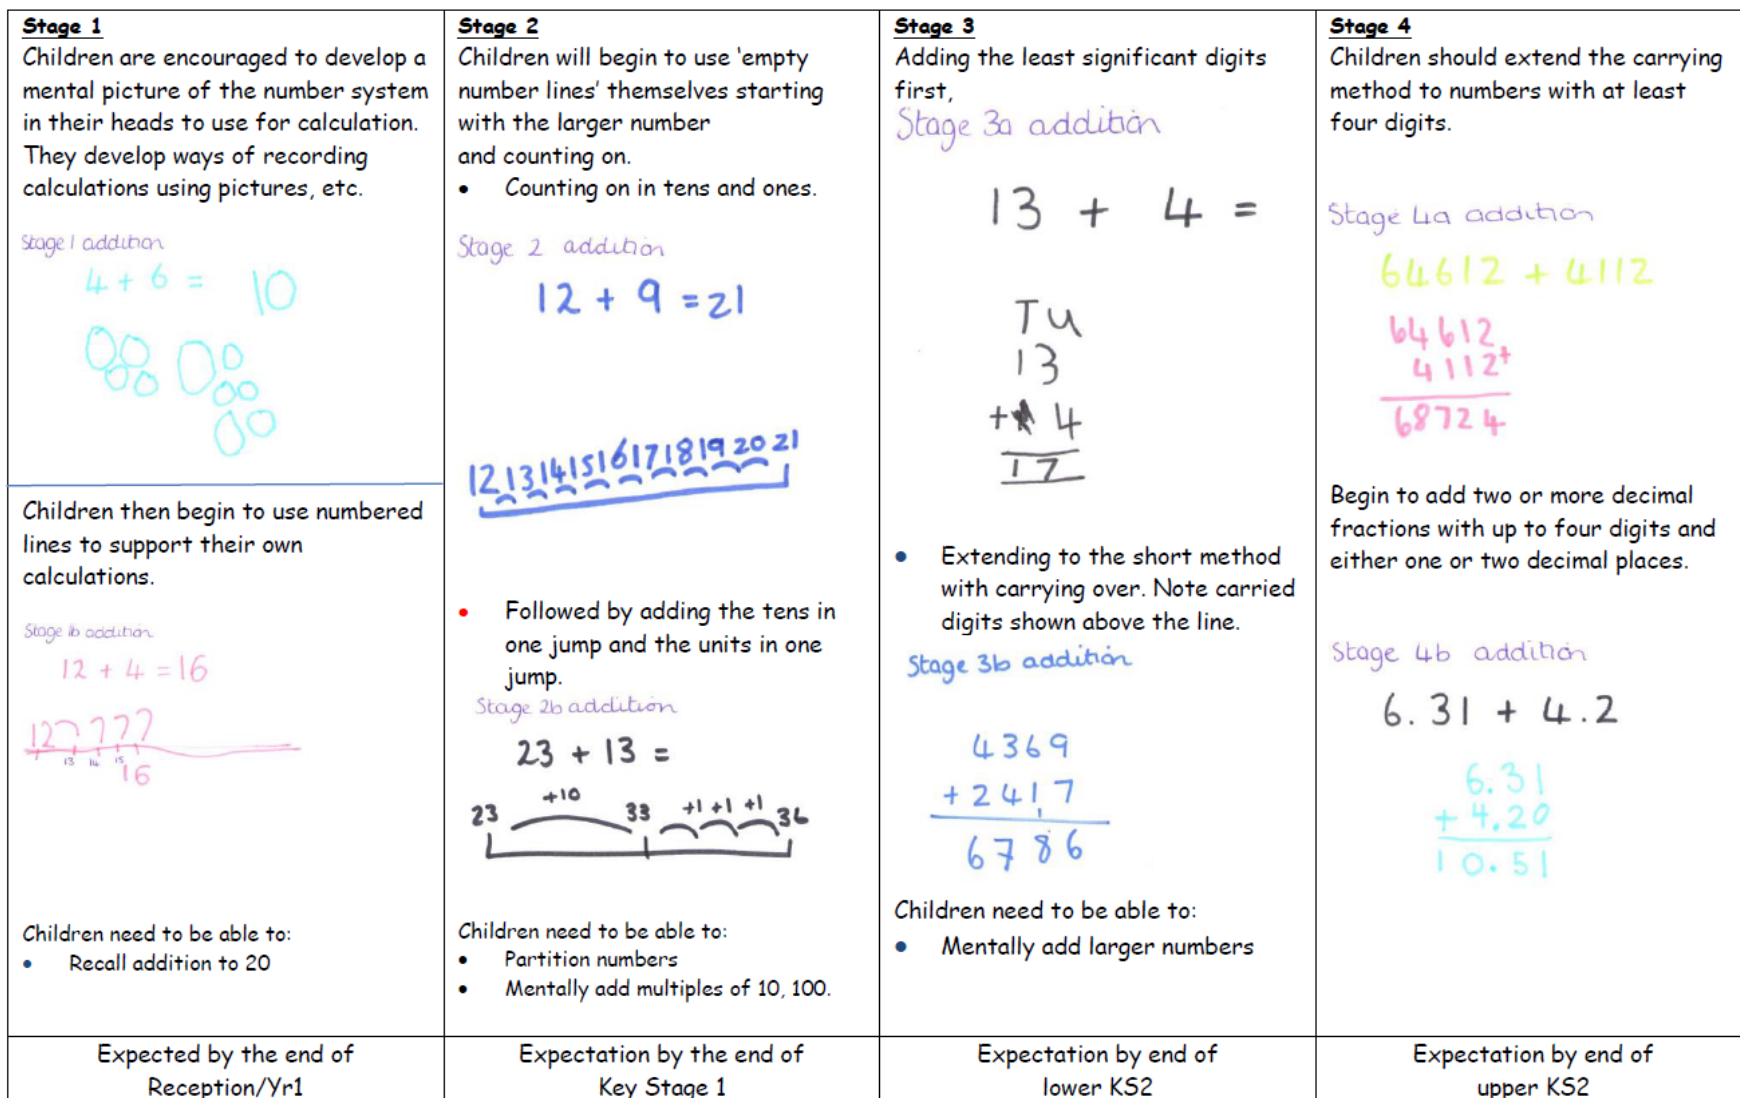 Stage 1
Children are encouraged to develop a
mental picture of the number system
in their heads to use for calculation.
They develop ways of recording
calculations using pictures, etc.
Stage 1 addition
4 + 6 = 10
Children then begin to use numbered
lines to support their own
calculations.
Stage 1b addition
12 + 4 = 16
12
13 14 15
16
Children need to be able to:
• Recall addition to 20
Expected by the end of
Reception/Yr1
Stage 2
Children will begin to use ‘empty
number lines’ themselves starting
with the larger number
and counting on.
• Counting on in tens and ones.
Stage 2 addition
12 + 9 = 21
12 13 14 15 16 17 18 19 20 21
• Followed by adding the tens in
one jump and the units in one
jump.
Stage 2b addition
23 + 13 =
+10 +1 +1 +1
23 33 36
Children need to be able to:
• Partition numbers
• Mentally add multiples of 10, 100.
Expectation by the end of
Key Stage 1
Stage 3
Adding the least significant digits
first,
Stage 3a addition
13 + 4 =
T U
13
+ 4
17
• Extending to the short method
with carrying over. Note carried
digits shown above the line.
Stage 3b addition
4369
+ 2417
1
6786
Children need to be able to:
• Mentally add larger numbers
Expectation by end of
lower KS2
Stage 4
Children should extend the carrying
method to numbers with at least
four digits.
Stage 4a addition
64612 + 4112
64612
4112+
68724
Begin to add two or more decimal
fractions with up to four digits and
either one or two decimal places.
Stage 4b addition
6.31 + 4.2
6.31
+ 4.20
10.51
Expectation by end of
upper KS2